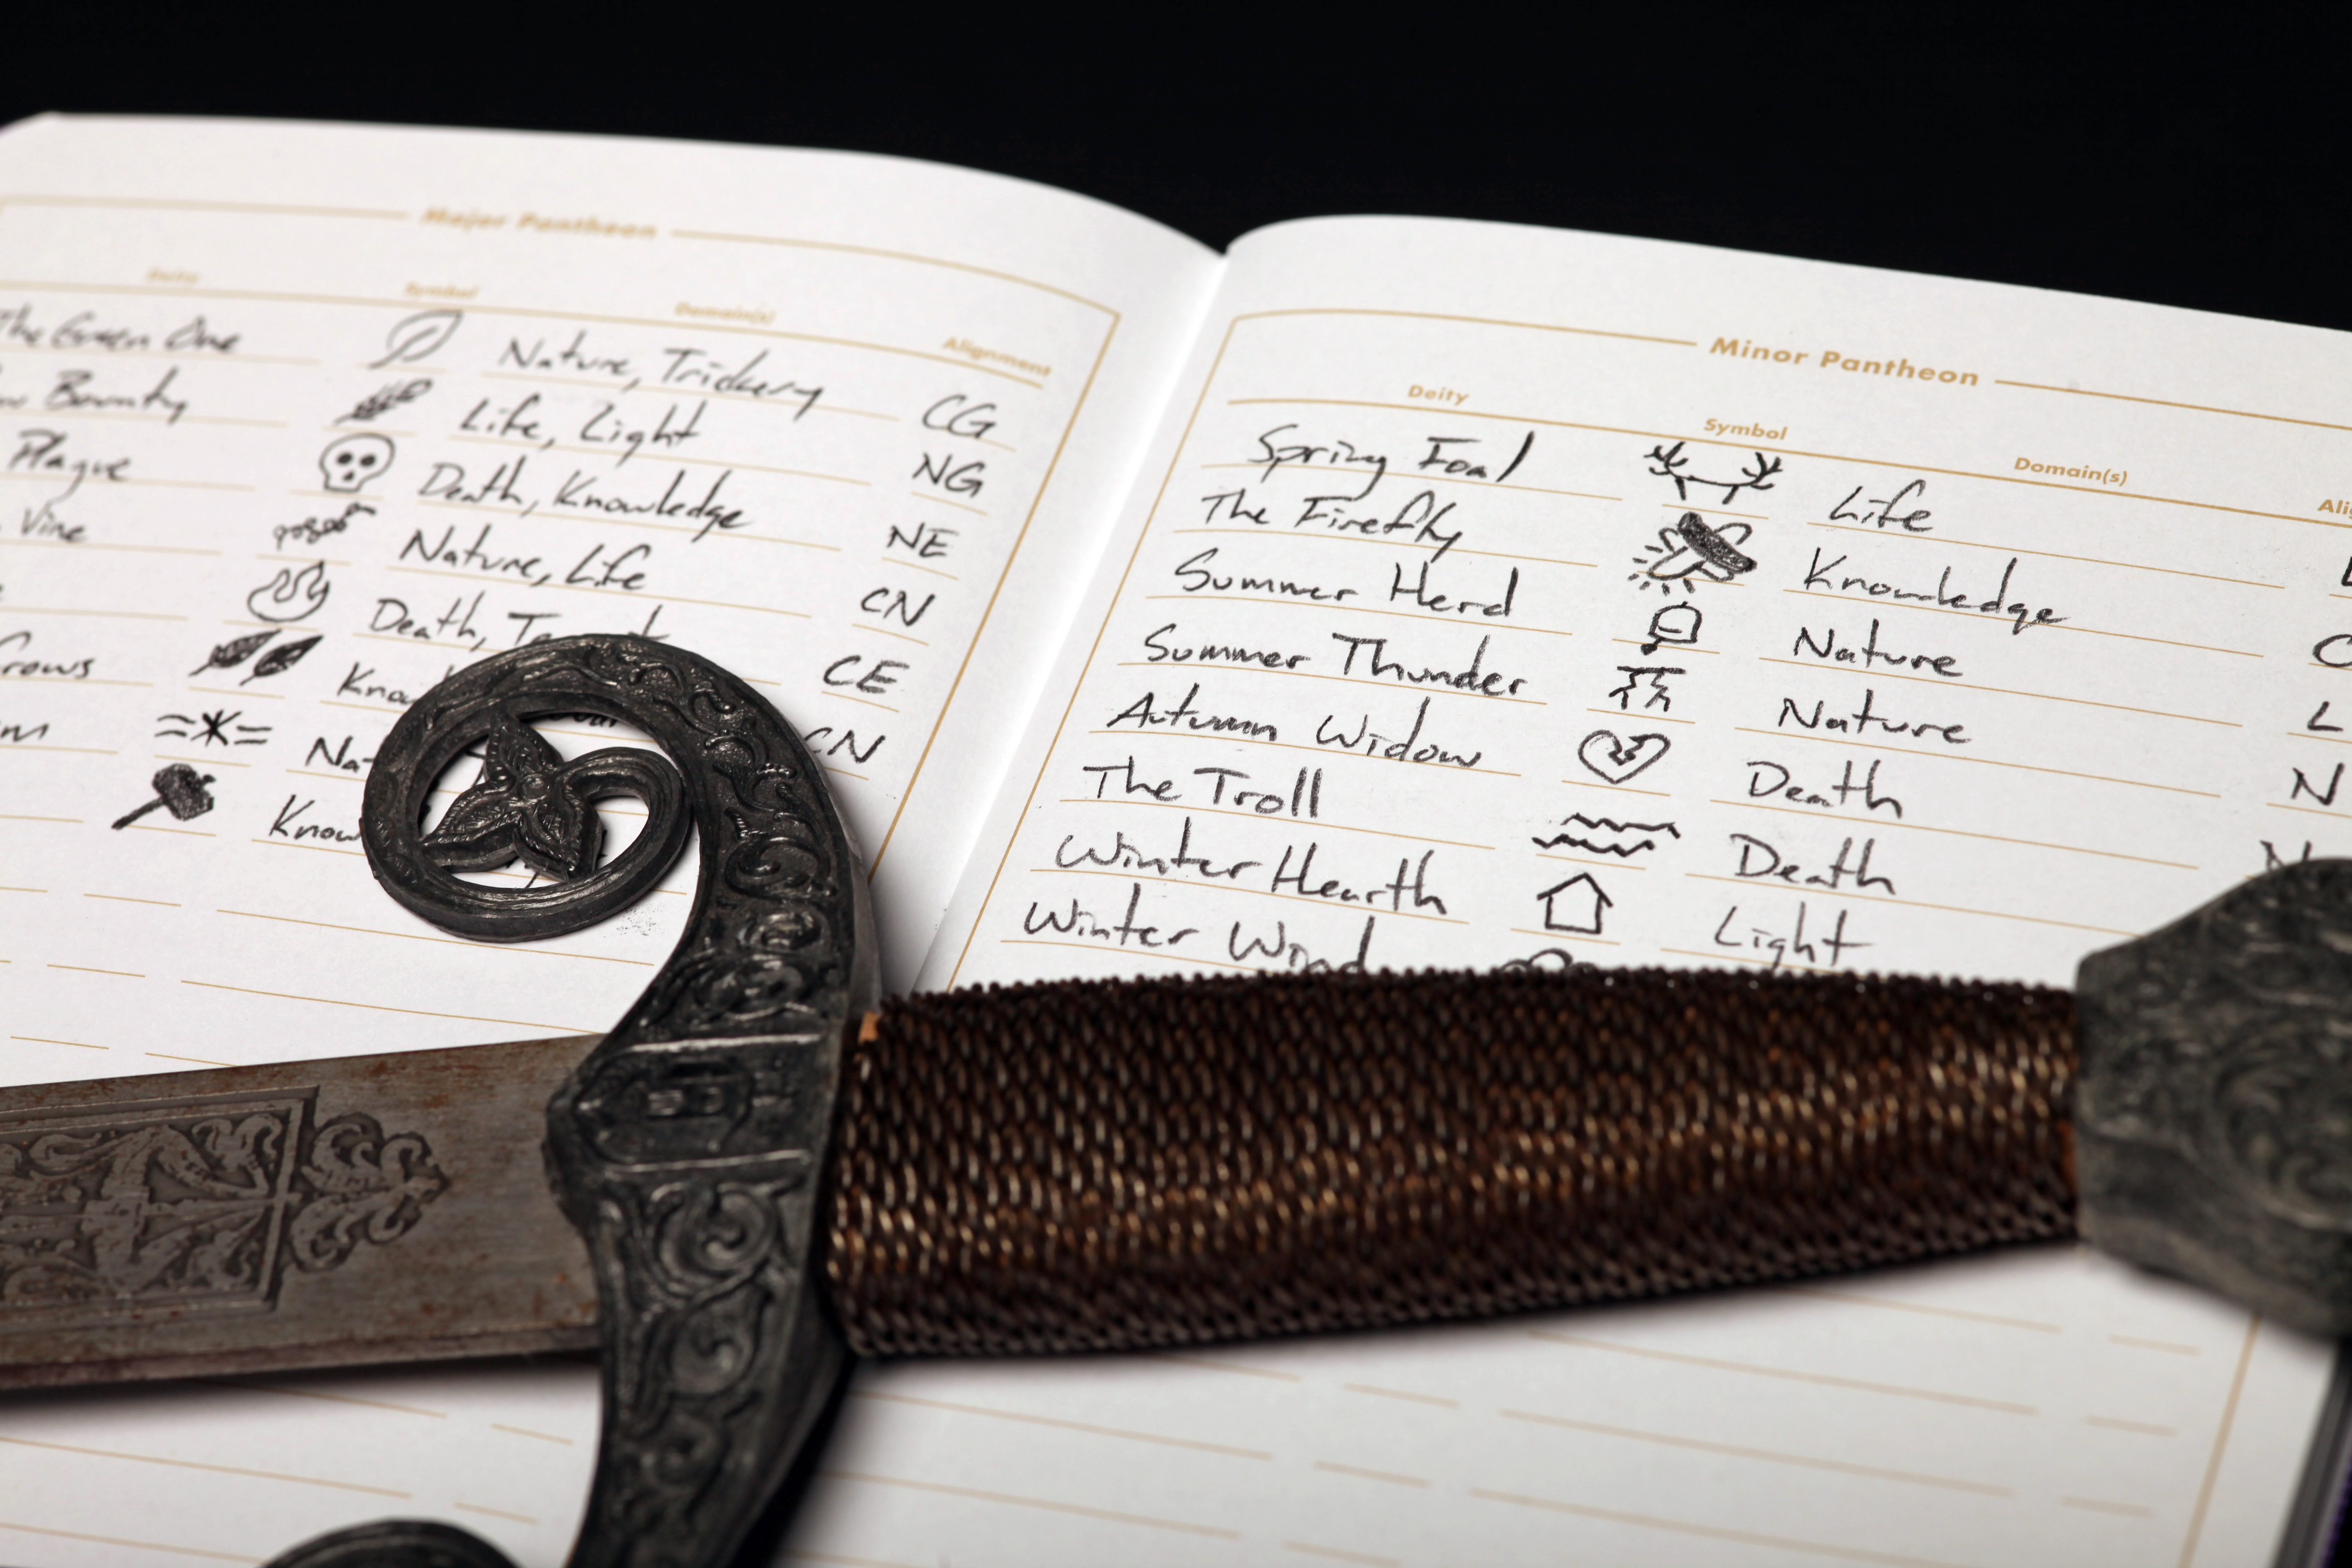 Major Pantheon
Deity Symbol Domain(s) Alignment
The Green One Nature, Trickery CG
Bounty Life, Light NG
Plague Death, Knowledge NE
Vine Nature, Life CN
Death, CE
Crows CN
Minor Pantheon
Deity Symbol Domain(s)
Spring Foal Life
The Firefly Knowledge
Summer Herd Nature
Summer Thunder Nature
Autumn Widow Death
The Troll Death
Winter Hearth Light
Winter Wind